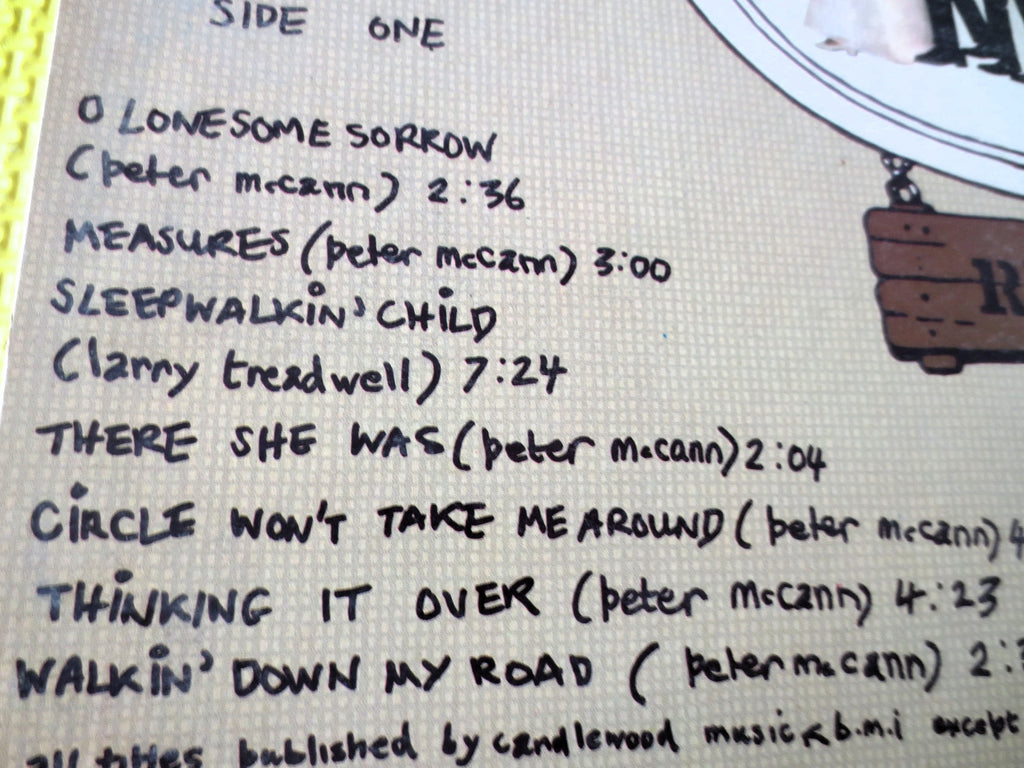 SIDE ONE
O LONESOME SORROW
(peter mccann) 2:36
MEASURES (peter mccann) 3:00
SLEEPWALKiN' CHiLD
(larry treadwell) 7:24
THERE SHE WAS (peter mccann) 2:04
CiRCLE WON'T TAKE ME AROUND (peter mccann) 4
THiNKING IT OVER (peter mccann) 4:23
WALKiN' DOWN MY ROAD (peter mccann) 2:
all titles published by candlewood music b.m.i except